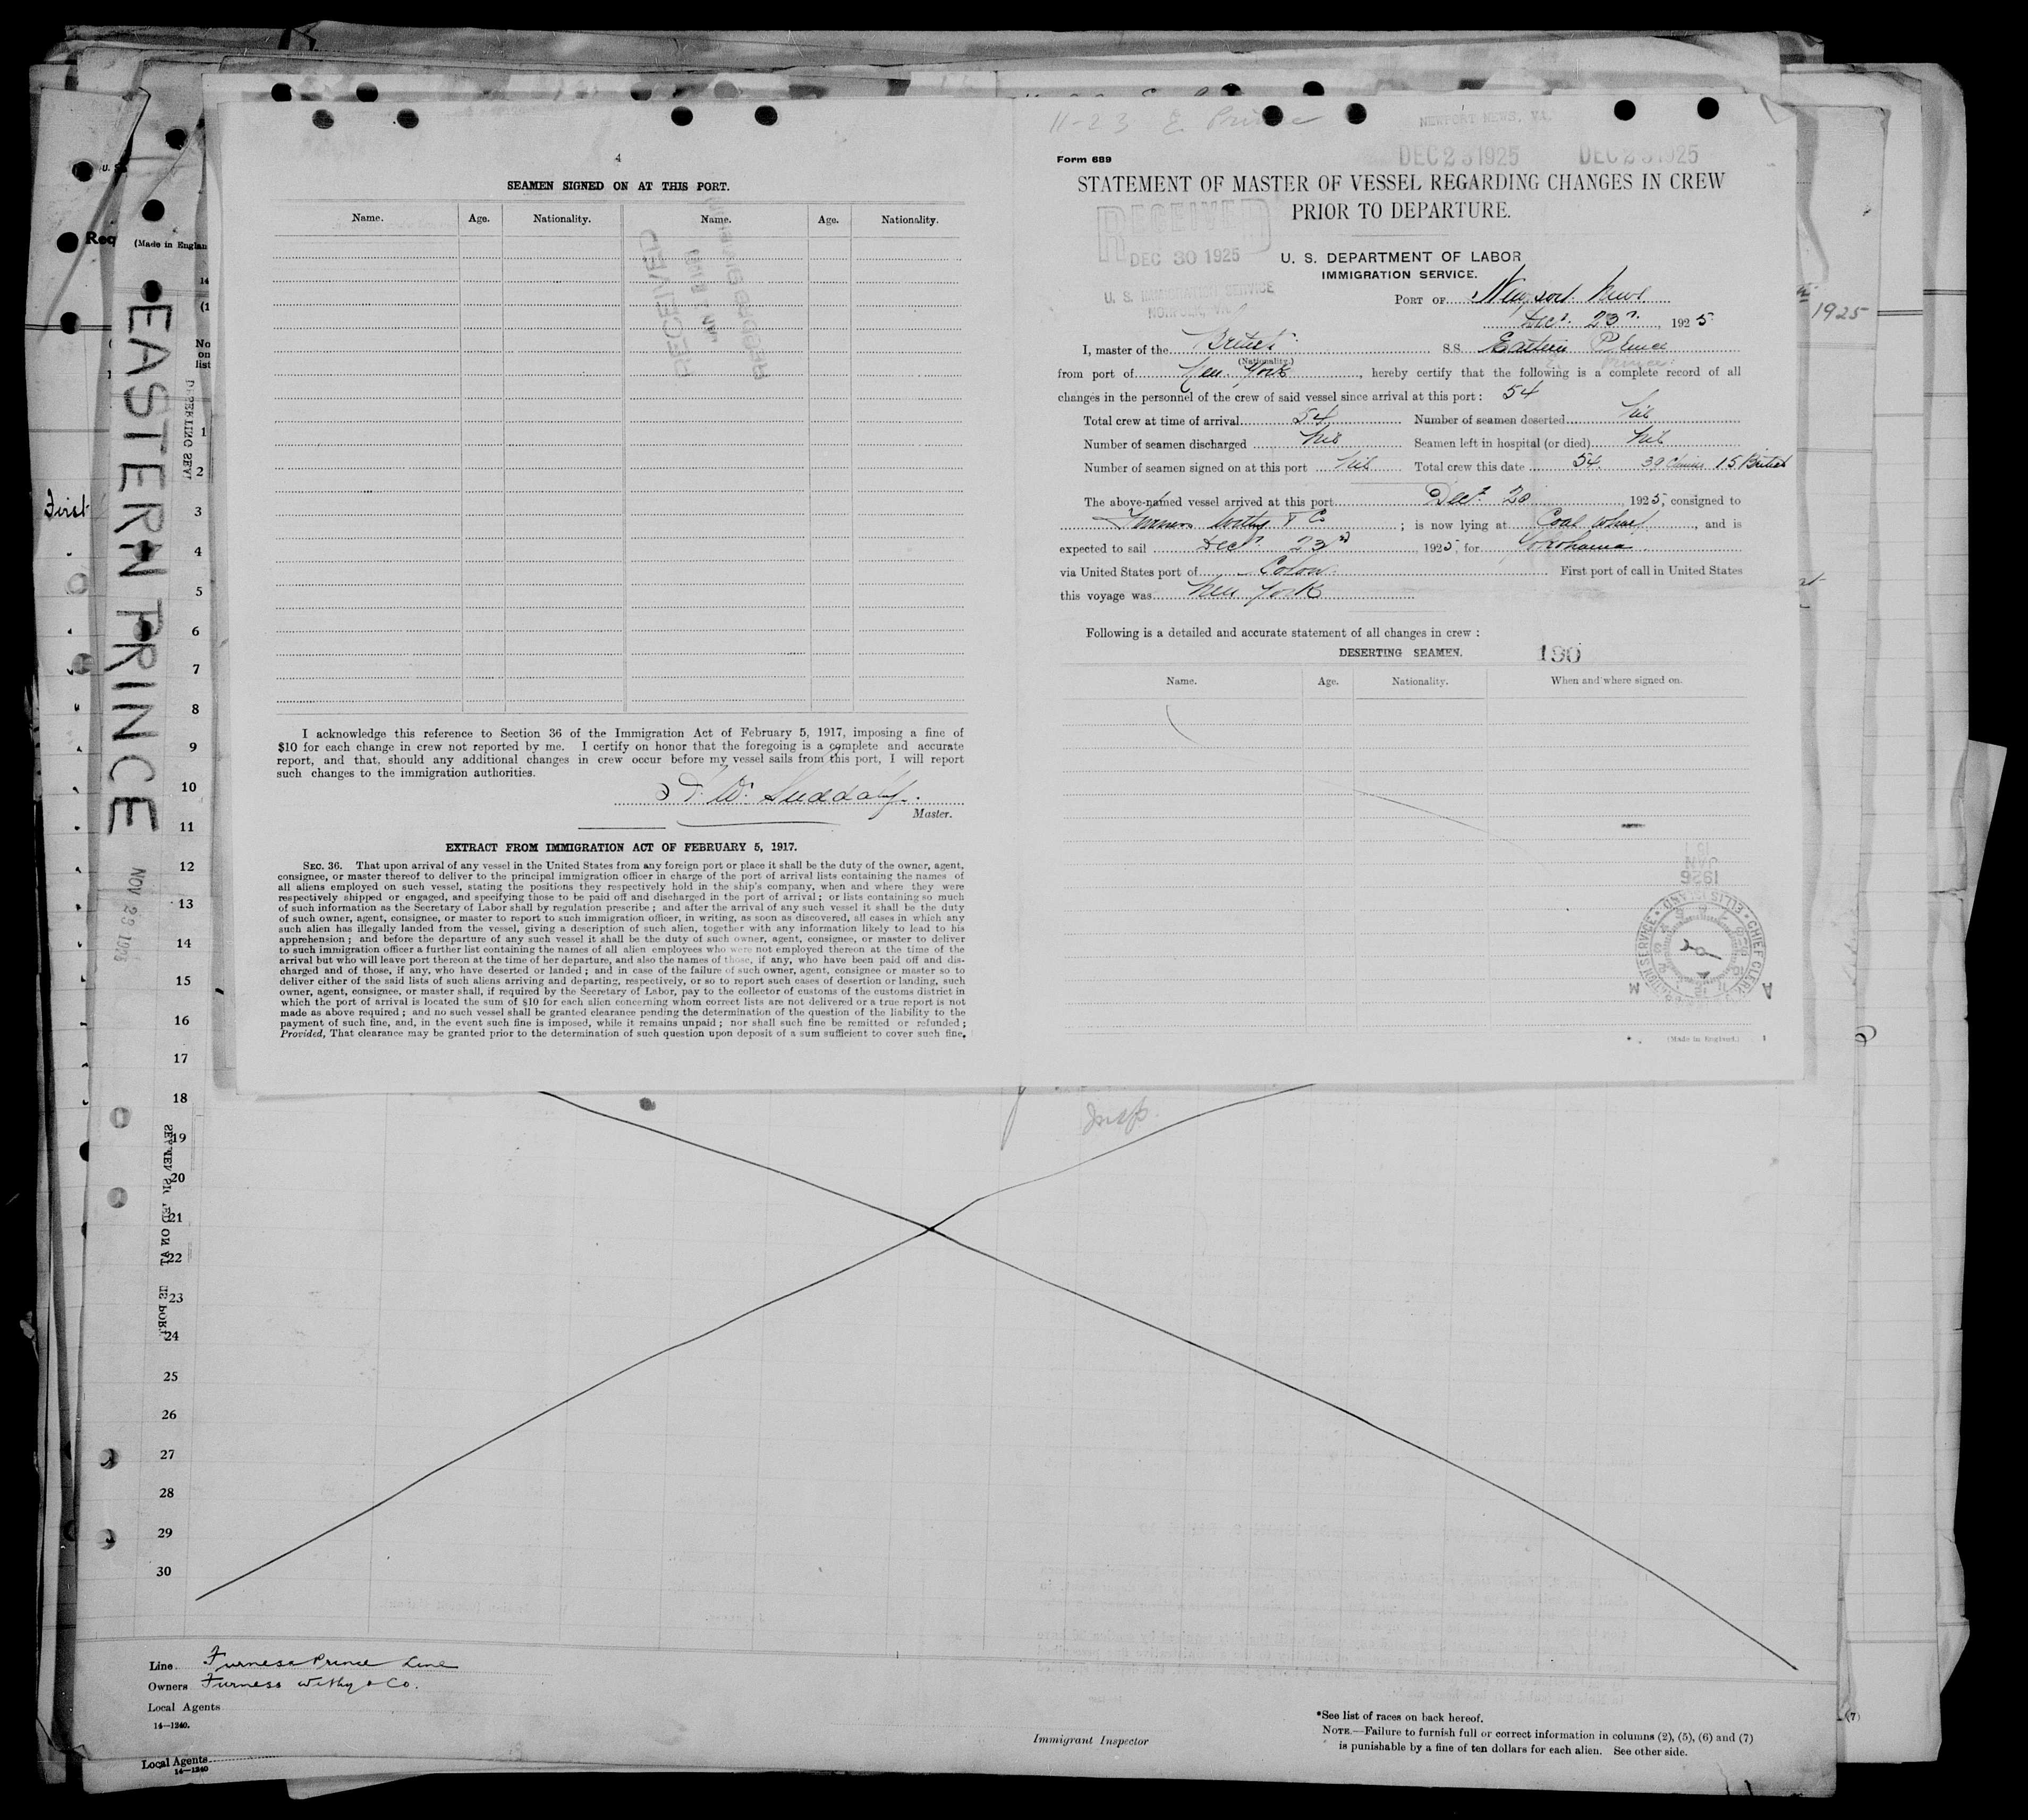 4
SEAMEN SIGNED ON AT THIS PORT.
Name. Age. Nationality. Name. Age. Nationality.
RECEIVED
I acknowledge this reference to Section 36 of the Immigration Act of February 5, 1917, imposing a fine of
$10 for each change in crew not reported by me. I certify on honor that the foregoing is a complete and accurate
report, and that, should any additional changes in crew occur before my vessel sails from this port, I will report
such changes to the immigration authorities.
Master.
EXTRACT FROM IMMIGRATION ACT OF FEBRUARY 5, 1917.
SEC. 36. That upon arrival of any vessel in the United States from any foreign port or place it shall be the duty of the owner, agent,
consignee, or master thereof to deliver to the principal immigration officer in charge of the port of arrival lists containing the names of
all aliens employed on such vessel, stating the positions they respectively hold in the ship's company, when and where they were
respectively shipped or engaged, and specifying those to be paid off and discharged in the port of arrival; or lists containing so much
of such information as the Secretary of Labor shall by regulation prescribe; and after the arrival of any such vessel it shall be the duty
of such owner, agent, consignee, or master to report to such immigration officer, in writing, as soon as discovered, all cases in which any
such alien has illegally landed from the vessel, giving a description of such alien, together with any information likely to lead to his
apprehension; and before the departure of any such vessel it shall be the duty of such owner, agent, consignee, or master to deliver
to such immigration officer a further list containing the names of all alien employees who were not employed thereon at the time of the
arrival but who will leave port thereon at the time of her departure, and also the names of those, if any, who have been paid off and dis-
charged and of those, if any, who have deserted or landed; and in case of the failure of such owner, agent, consignee or master so to
deliver either of the said lists of such aliens arriving and departing, respectively, or so to report such cases of desertion or landing, such
owner, agent, consignee, or master, shall, if required by the Secretary of Labor, pay to the collector of customs of the customs district in
which the port of arrival is located the sum of $10 for each alien concerning whom correct lists are not delivered or a true report is not
made as above required; and no such vessel shall be granted clearance pending the determination of the question of the liability to the
payment of such fine, and, in the event such fine is imposed, while it remains unpaid; nor shall such fine be remitted or refunded;
Provided, That clearance may be granted prior to the determination of such question upon deposit of a sum sufficient to cover such fine.
11-23 E. Prince
NEWPORT NEWS, VA.
DEC 23 1925 DEC 23 1925
Form 689
STATEMENT OF MASTER OF VESSEL REGARDING CHANGES IN CREW
PRIOR TO DEPARTURE.
RECEIVED
DEC 30 1925
U. S. IMMIGRATION SERVICE
NORFOLK, VA.
U. S. DEPARTMENT OF LABOR
IMMIGRATION SERVICE.
PORT OF Newport News
Dec. 23, 1925
I, master of the British S.S. Eastern Prince
(Nationality.)
from port of New York, hereby certify that the following is a complete record of all
changes in the personnel of the crew of said vessel since arrival at this port: 54
Total crew at time of arrival 54 Number of seamen deserted Nil
Number of seamen discharged Nil Seamen left in hospital (or died) Nil
Number of seamen signed on at this port Nil Total crew this date 54. 39 Chinese 15 British
The above-named vessel arrived at this port Dec. 20, 1925, consigned to
Furness Withy & Co; is now lying at Coal Wharf, and is
expected to sail Dec. 23rd 1925, for Yokohama.
via United States port of Colon. First port of call in United States
this voyage was New York
Following is a detailed and accurate statement of all changes in crew:
DESERTING SEAMEN. 190
Name. Age. Nationality. When and where signed on.
JAN
1926
ELLIS ISLAND CHIEF CLERK
(Made in England.) 1
EASTERN PRINCE
NOV 23 1925
First
(Made in Englan
Req
No
on
list
1925
1
2
3
4
5
6
7
8
9
10
11
12
13
14
15
16
17
18
19
20
21
22
23
24
25
26
27
28
29
30
Insp.
Line Furness Prince Line
Owners Furness Withy & Co.
Local Agents
14—1240.
Immigrant Inspector
*See list of races on back hereof.
NOTE.—Failure to furnish full or correct information in columns (2), (5), (6) and (7)
is punishable by a fine of ten dollars for each alien. See other side.
Local Agents
14—1240
(7)